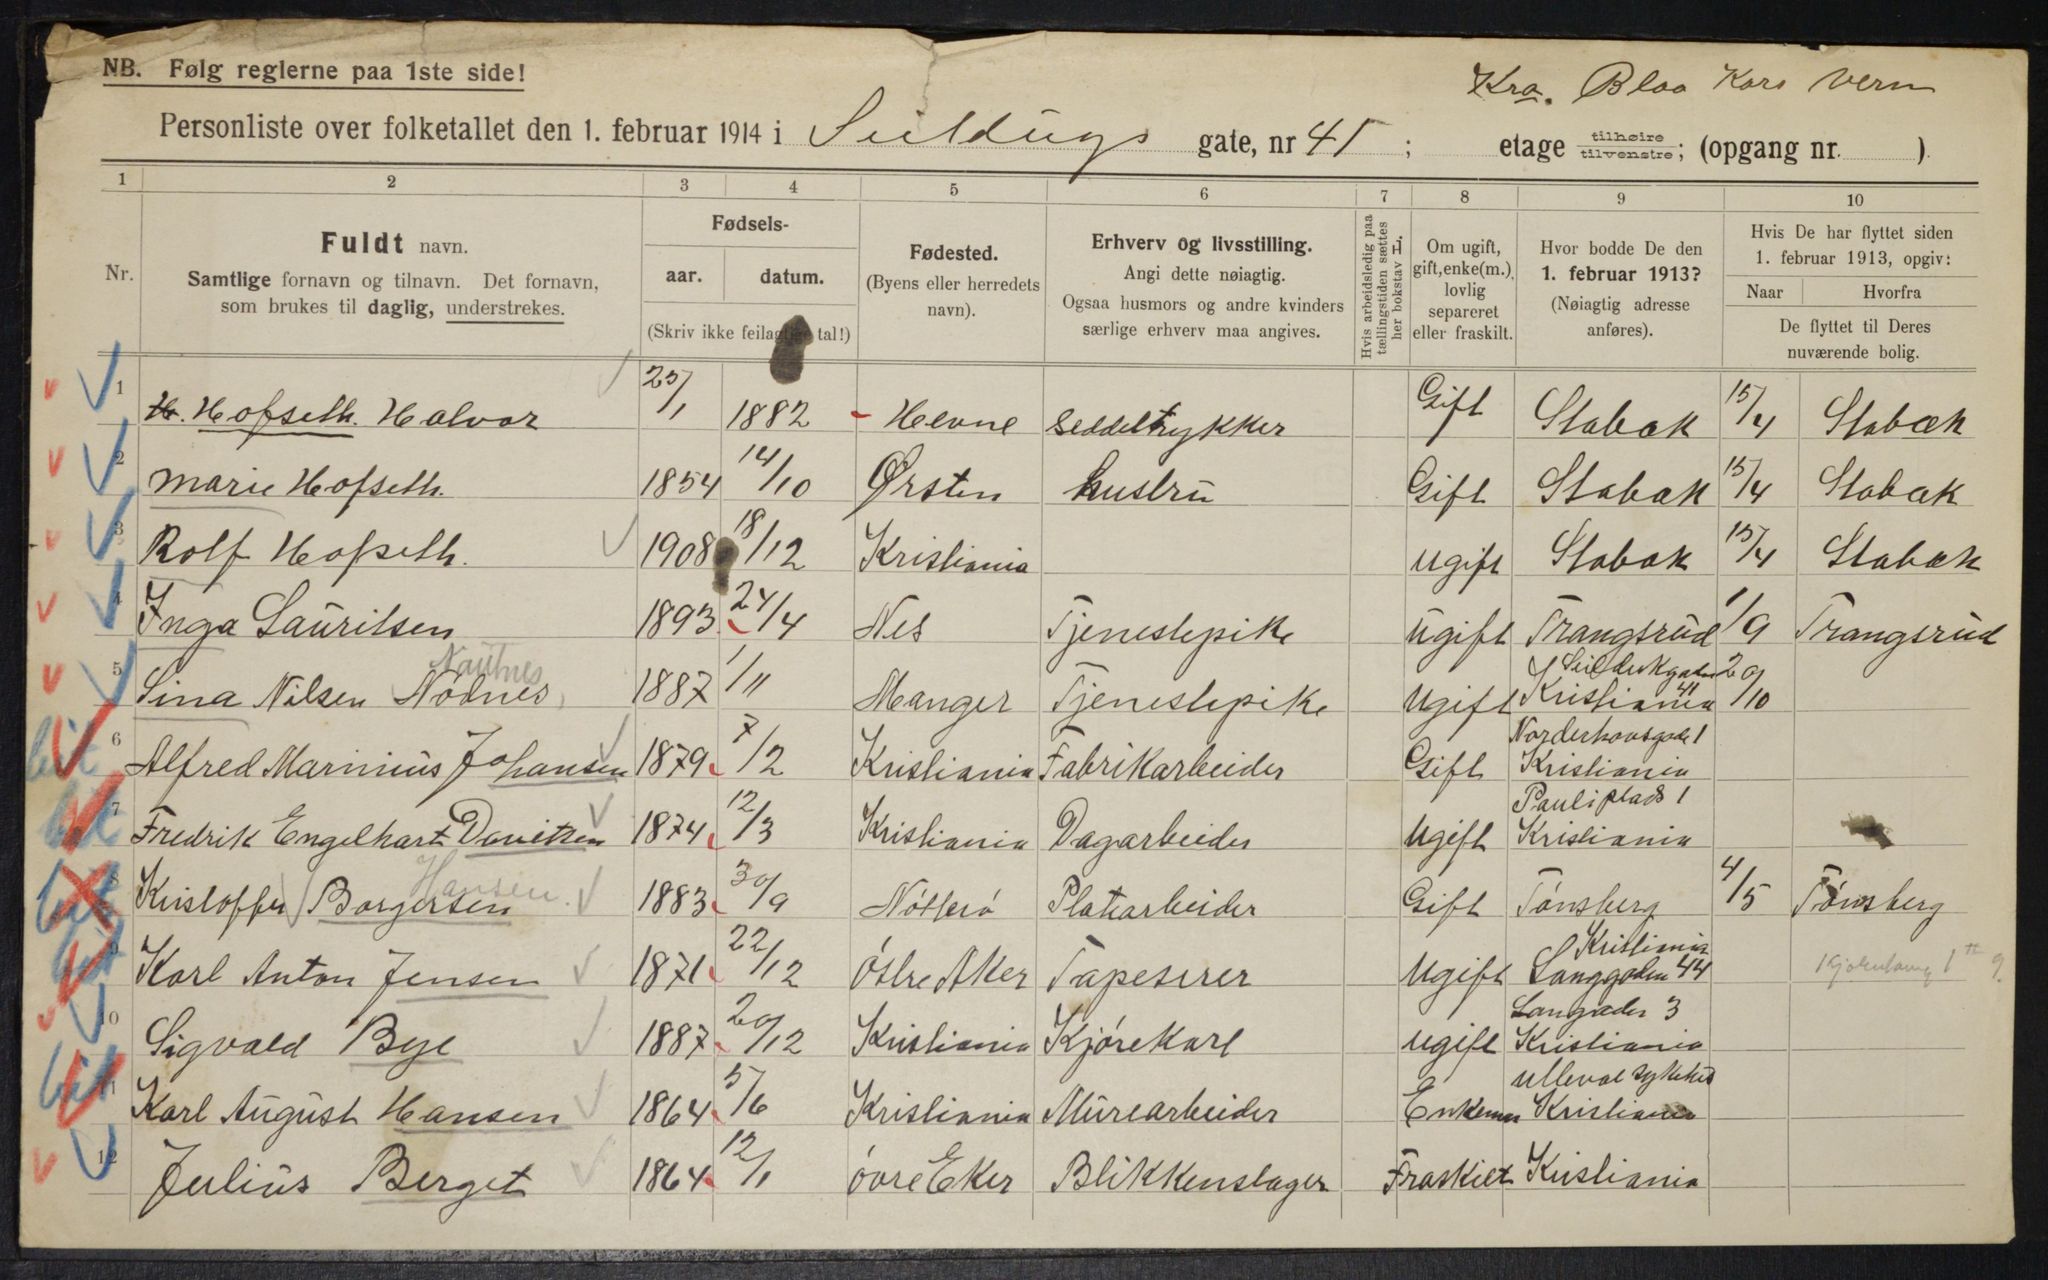 NB. Følg reglerne paa 1ste side!
Kra. Blaa Kors Vern
Personliste over folketallet den 1. februar 1914 i Seildugs gate, nr 41; etage tilhøire tilvenstre; (opgang nr. )
1 2 3 4 5 6 7 8 9 10
Nr.
Fuldt navn.
Samtlige fornavn og tilnavn. Det fornavn,
som brukes til daglig, understrekes.
Fødsels-
aar. datum.
(Skriv ikke feilagtige tal!)
Fødested.
(Byens eller herredets
navn).
Erhverv og livsstilling.
Angi dette nøiagtig.
Ogsaa husmors og andre kvinders
særlige erhverv maa angives.
Hvis arbeidsledig paa
tællingstiden sættes
her bokstav L.
Om ugift,
gift, enke(m.),
lovlig
separeret
eller fraskilt.
Hvor bodde De den
1. februar 1913?
(Nøiagtig adresse
anføres).
Hvis De har flyttet siden
1. februar 1913, opgiv:
Naar Hvorfra
De flyttet til Deres
nuværende bolig.
1 H. Hofseth. Halvor 25/1 1882 Hevne Seddeltrykker Gift Stabæk 15/4 Stabæk
2 Marie Hofseth. 1854 14/10 Ørsten hustru Gift Stabæk 15/4 Stabæk
3 Rolf Hofseth. 1908 18/12 Kristiania ugift Stabæk 15/4 Stabæk
4 Inga Lauritsen 1893 24/4 Nes Tjenestepike ugift Trangsrud 1/9 Trangsrud
Nautnes
5 Sina Nilsen Nödnes 1887 1/11 Manger Tjenestepike ugift Seildukgaten 41 Kristiania 20/10
6 Alfred Marinius Johansen 1879 7/2 Kristiania Fabrikarbeider Gift Norderhovsgade 1 Kristiania
7 Fredrik Engelhart Davitsen 1874 12/3 Kristiania Dagarbeider ugift Pauliplads 1 Kristiania
Hansen.
8 Kristoffer Borgersen 1883 30/9 Nötterö Platearbeider Gift Tönsberg 4/5 Tönsberg
9 Karl Anton Jensen 1871 22/12 Östre Aker Tapeserer ugift Kristiania Langgaden 44
10 Sigvald Bye 1887 20/12 Kristiania Kjörekarl ugift Langaden 3 Kristiania
11 Karl August Hansen 1864 5/6 Kristiania Murearbeider Enkeman Ulleval sykehus Kristiania
12 Julius Berget 1864 12/1 övre Eker Blikkenslager Fraskiet Kristiania